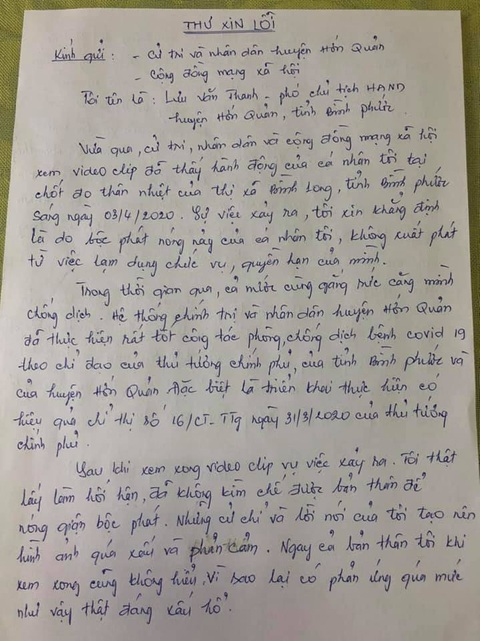 THƯ XIN LỖI
Kính gửi: - Cử tri và nhân dân huyện Hớn Quản
- Cộng đồng mạng xã hội
Tôi tên là: Lưu Văn Thanh - phó chủ tịch HĐND
huyện Hớn Quản, tỉnh Bình phước.
Vừa qua, cử tri, nhân dân và cộng đồng mạng xã hội
xem video clip đã thấy hành động của cá nhân tôi tại
chốt đo thân nhiệt của thị xã Bình Long, tỉnh Bình phước
sáng ngày 03/4/2020. Sự việc xảy ra, tôi xin khẳng định
là do bộc phát nóng nảy của cá nhân tôi, không xuất phát
từ việc lạm dụng chức vụ, quyền hạn của mình.
Trong thời gian qua, cả nước cùng gắng sức căng mình
chống dịch. Hệ thống chính trị và nhân dân huyện Hớn Quản
đã thực hiện rất tốt công tác phòng, chống dịch bệnh covid 19
theo chỉ đạo của thủ tướng chính phủ, của tỉnh Bình phước và
của huyện Hớn Quản. Đặc biệt là triển khai thực hiện có
hiệu quả chỉ thị số 16/CT-TTg ngày 31/3/2020 của thủ tướng
chính phủ.
Sau khi xem xong video clip vụ việc xảy ra. Tôi thật
lấy làm hối hận, đã không kìm chế được bản thân để
nóng giận bộc phát. Những cử chỉ và lời nói của tôi tạo nên
hình ảnh quá xấu và phản cảm. Ngay cả bản thân tôi khi
xem xong cũng không hiểu, vì sao lại có phản ứng quá mức
như vậy thật đáng xấu hổ.